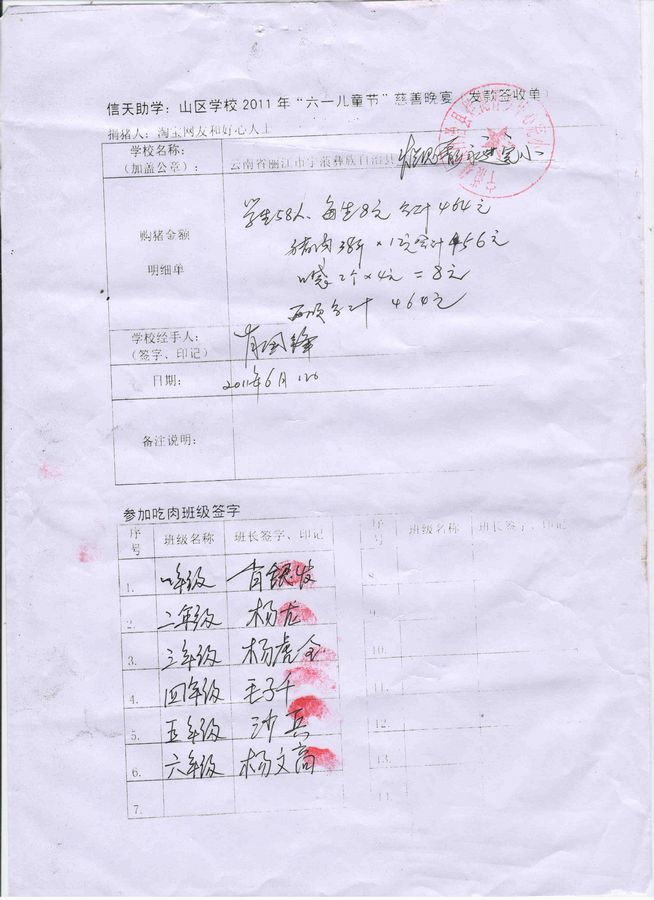 信天助学：山区学校2011年“六一儿童节”慈善晚宴（发款签收单）
捐猪人：淘宝网友和好心人士
学校名称：
（加盖公章）：
云南省丽江市宁蒗彝族自治县
完小
购猪金额
明细单
学生58人、每生8元 合计464元
猪肉38斤×12元合计456元
口袋2个×4元=8元
两项合计 464元
学校经手人：
（签字、印记）
肖国锋
日期：
2011年6月1日
备注说明：
参加吃肉班级签字
序号 班级名称 班长签字、印记 序号 班级名称 班长签字、印记
1. 一年级 肖银发 8.
2. 二年级 杨龙 9.
3. 三年级 杨虎全 10.
4. 四年级 毛子千 11.
5. 五年级 沙兵 12.
6. 六年级 杨文高 13.
7. 14.